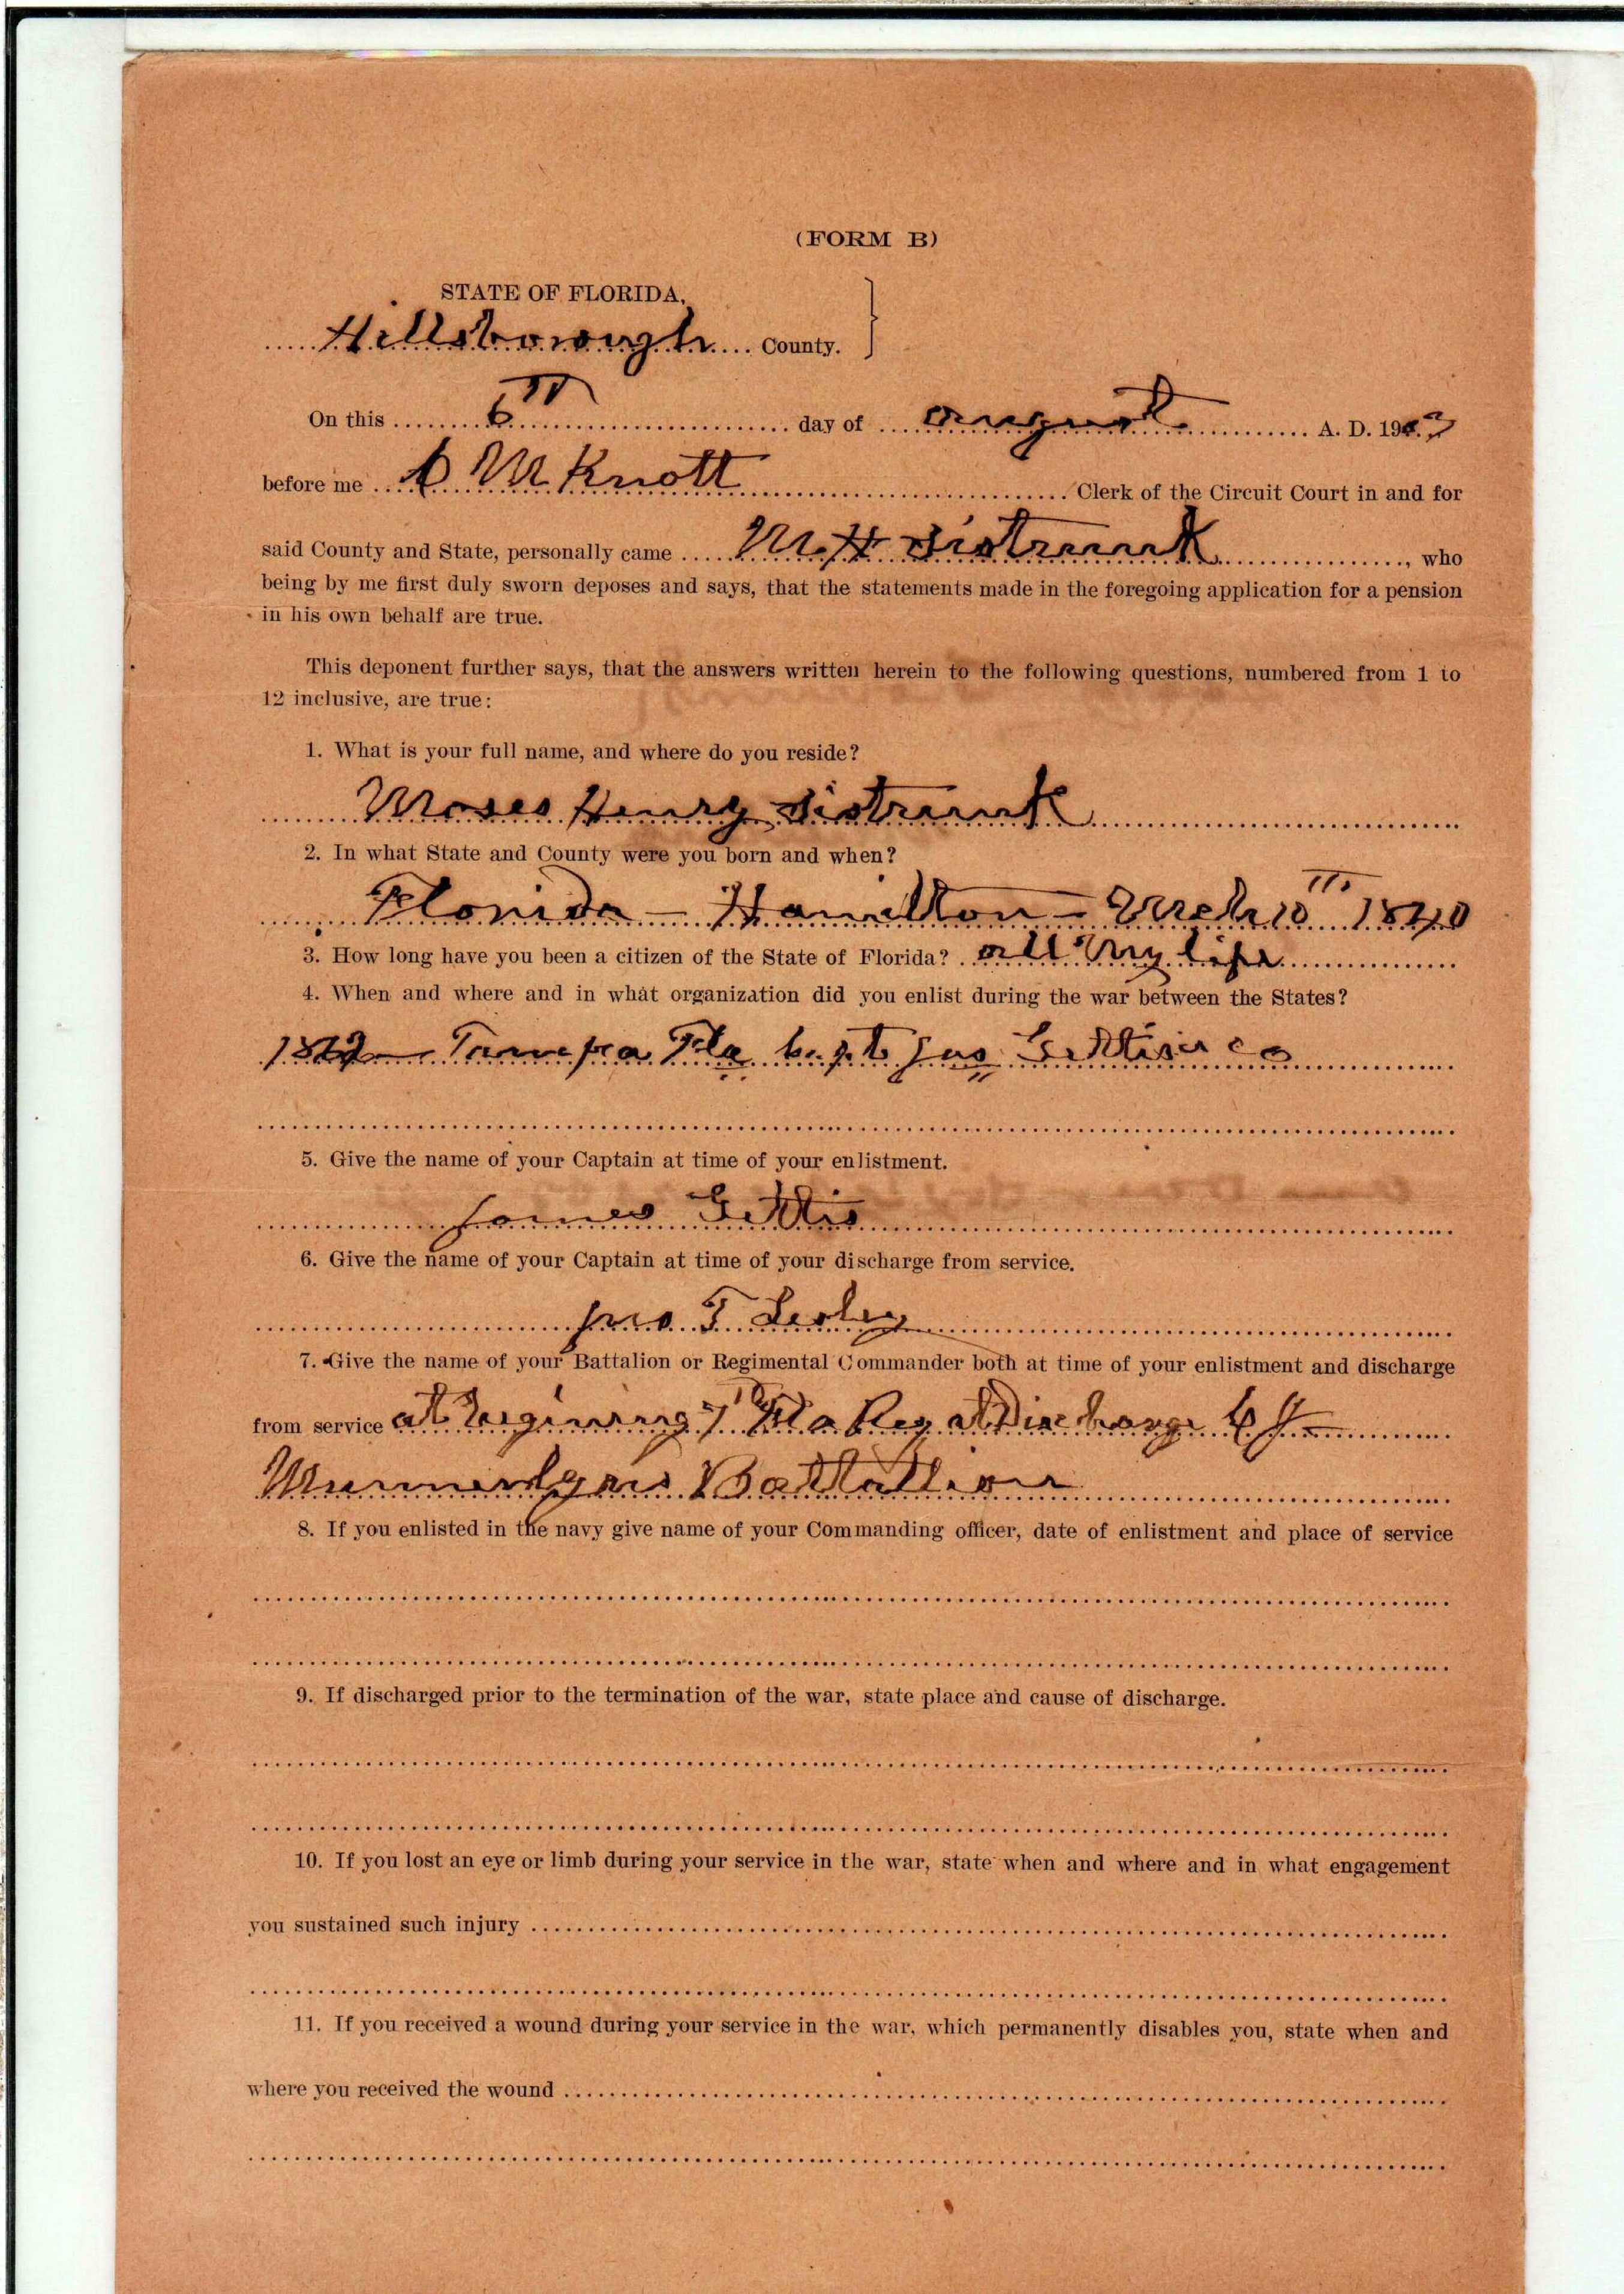 (FORM B)
STATE OF FLORIDA,
Hillsborough County.
On this 6th day of August A. D. 1903
before me C M Knott Clerk of the Circuit Court in and for
said County and State, personally came M. H Sistrunk, who
being by me first duly sworn deposes and says, that the statements made in the foregoing application for a pension
in his own behalf are true.
This deponent further says, that the answers written herein to the following questions, numbered from 1 to
12 inclusive, are true:
1. What is your full name, and where do you reside?
Moses Henry Sistrunk
2. In what State and County were you born and when?
Florida - Hamilton - Mrch 10th 1840
3. How long have you been a citizen of the State of Florida? all my life
4. When and where and in what organization did you enlist during the war between the States?
Tampa Fla Capt Jas Gettis' co
5. Give the name of your Captain at time of your enlistment.
James Gettis
6. Give the name of your Captain at time of your discharge from service.
Jno T Lesley
7. Give the name of your Battalion or Regimental Commander both at time of your enlistment and discharge
from service at begining 7th Fla Reg at Discharge C J
Munnerlyns Battallion
8. If you enlisted in the navy give name of your Commanding officer, date of enlistment and place of service
9. If discharged prior to the termination of the war, state place and cause of discharge.
10. If you lost an eye or limb during your service in the war, state when and where and in what engagement
you sustained such injury
11. If you received a wound during your service in the war, which permanently disables you, state when and
where you received the wound